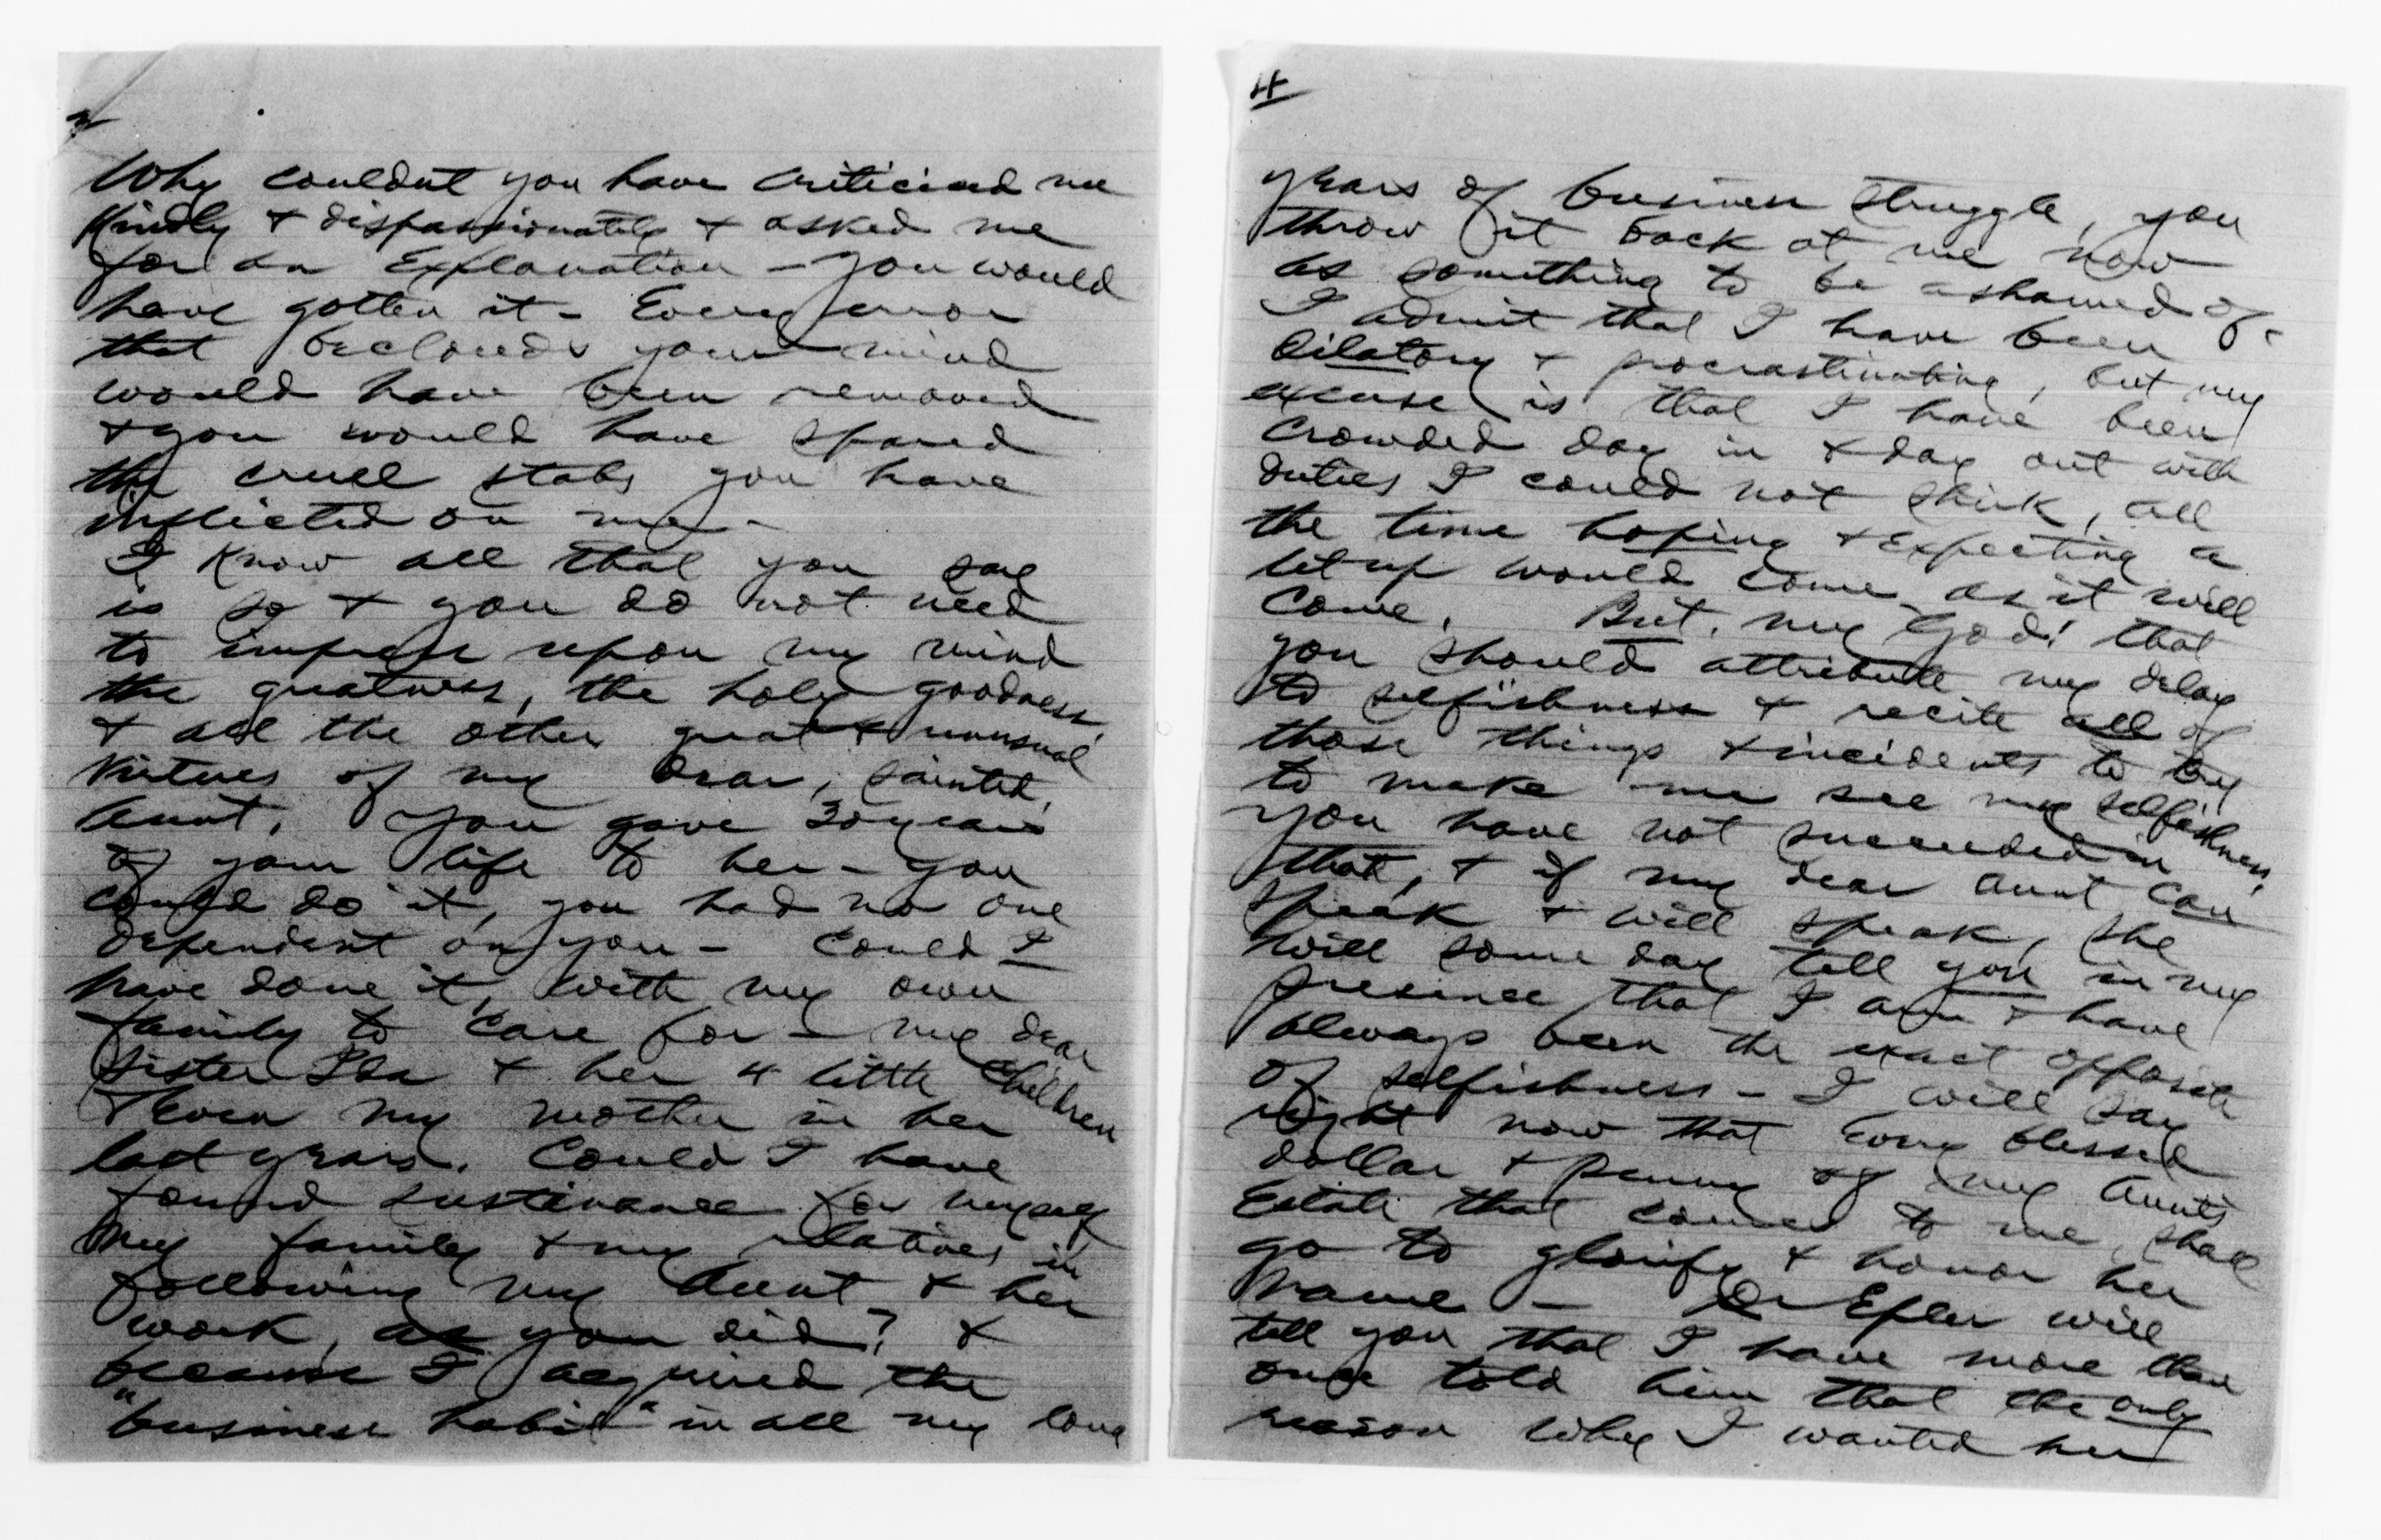 Why couldnt you have criticised me
Kindly & dispassionately & asked me
for an Explanation - you would
have gotten it - Every error
that beclouds your mind
would have been removed
& you would have spared
the cruel stabs you have
inflicted on me -
I know all that you say
is so & you do not need
to impress upon my mind
the greatness, the holy goodness,
& all the other great & unusual
virtues of my dear, sainted,
Aunt. You gave 30 years
of your life to her - you
could do it, you had no one
dependent on you - Could I
have done it, with my own
family to care for - my dear
Sister Ida & her 4 little children
& even my mother in her
last years. Could I have
found sustinance for myself
my family & my relatives in
following my Aunt & her
work, as you did? &
because I acquired the
"business habit" in all my long
4
years of business struggle, you
throw it back at me now
as something to be ashamed of.
I admit that I have been
dilatory & procrastinating, but my
excuse is that I have been
crowded day in & day out with
duties I could not shirk, all
the time hoping & expecting a
let up would come as it will
come. But, my God! that
you should attribute my delay
to selfishness & recite all of
those things & incidents to try
to make me see my selfishness,
you have not succeeded in
that, & if my dear Aunt can
speak & will speak, she
will some day tell you in my
presence that I am & have
always been the exact opposite
of selfishness - I will say
right now that every blessed
dollar & penny of my Aunts
Estate that comes to me, shall
go to glorify & honor her
name - Dr Epler will
tell you that I have more than
once told him that the only
reason why I wanted her